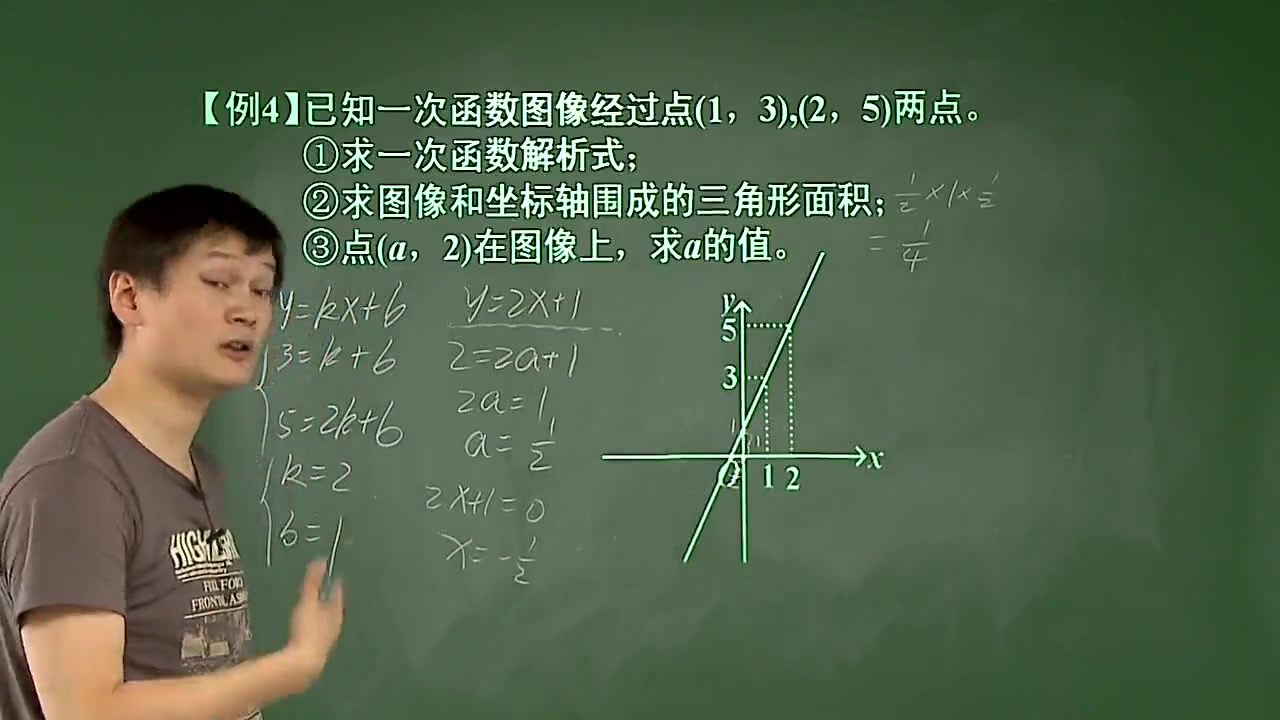 【例4】已知一次函数图像经过点(1，3),(2，5)两点。
①求一次函数解析式；
②求图像和坐标轴围成的三角形面积； 1/2 × 1 × 1/2
= 1/4
③点(a，2)在图像上，求a的值。
y=kx+b
3=k+b
5=2k+b
k=2
b=1
y=2x+1
2=2a+1
2a=1
a=1/2
2x+1=0
x=-1/2
y
5
3
1
x
1 2
HIGH
FRONTAL